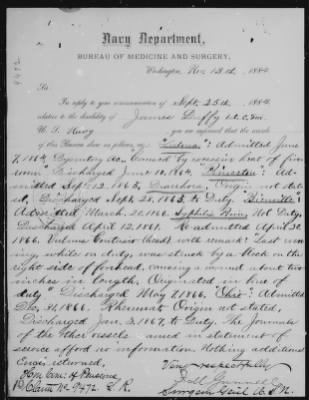 9472
Navy Department,
BUREAU OF MEDICINE AND SURGERY,
Washington, Nov. 13th, 1884
Sir:
In reply to your communication of Sept. 25th, 1884,
relative to the disability of James Duffy
U. S. Navy you are informed that the records
of this Bureau show as follows, Admitted June
7, 1864, Dysentery Ac. Caused by excessive heat of fire
room" Discharged June 10, 1864, "Princeton" Ad-
mitted Sept. 12, 1865, Diarrhoea, Origin not sta-
ted, Discharged Sept. 20, 1865, to Duty. "Bienville"
Admitted March 20, 1866, Syphilis Prim, Not Duty,
Discharged April 12, 1861, Readmitted April 30,
1866, Vulnus Contusio (head) with remark: Last even-
ing, while on duty, was struck by a block on the
right side of forehead, causing a wound about two
inches in length, Originated in line of
duty" Discharged May 7, 1866, "Ohio": Admitted
Dec. 31, 1866, Rheumat. Origin not stated,
Discharged Jan. 3, 1867, to Duty. The Journals
of the other vessels named in statement of
service afford no information. Nothing additional
Encs. returned,
Very respectfully
Hon. Com. of Pensions
Surgeon Genl. U.S.N.
Claim No 9472